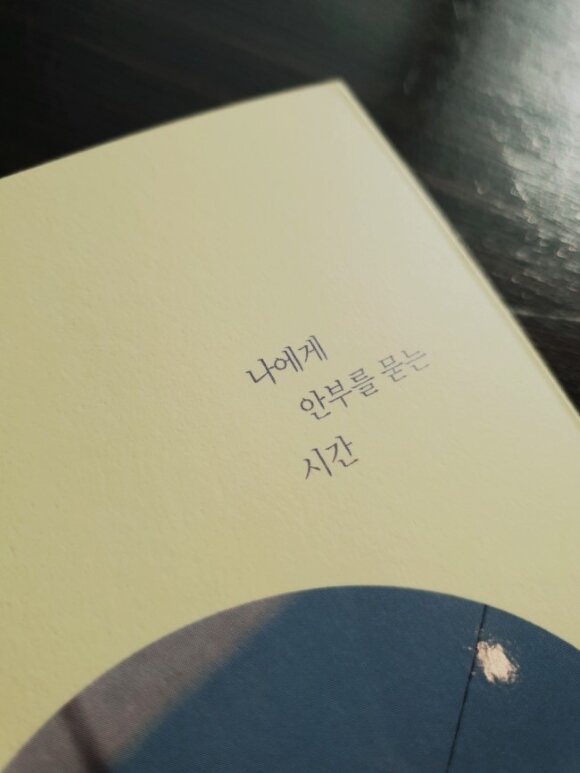 나에게
안부를 묻는
시간